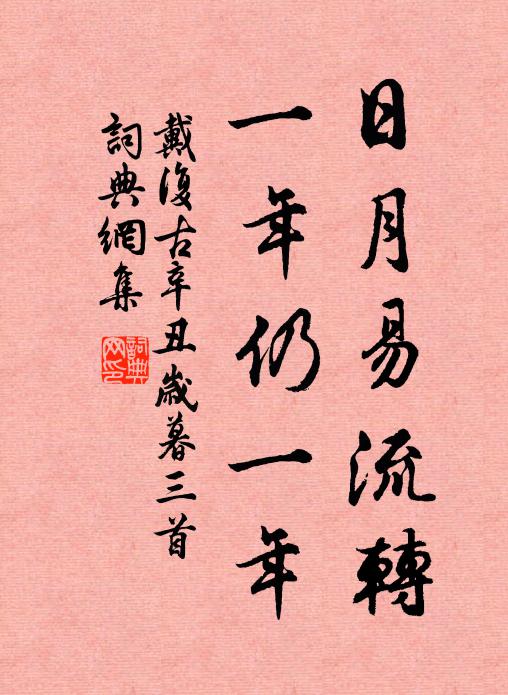 日月易流轉
一年仍一年
戴復古辛丑歲暮三首
詞典網集
詞典網印